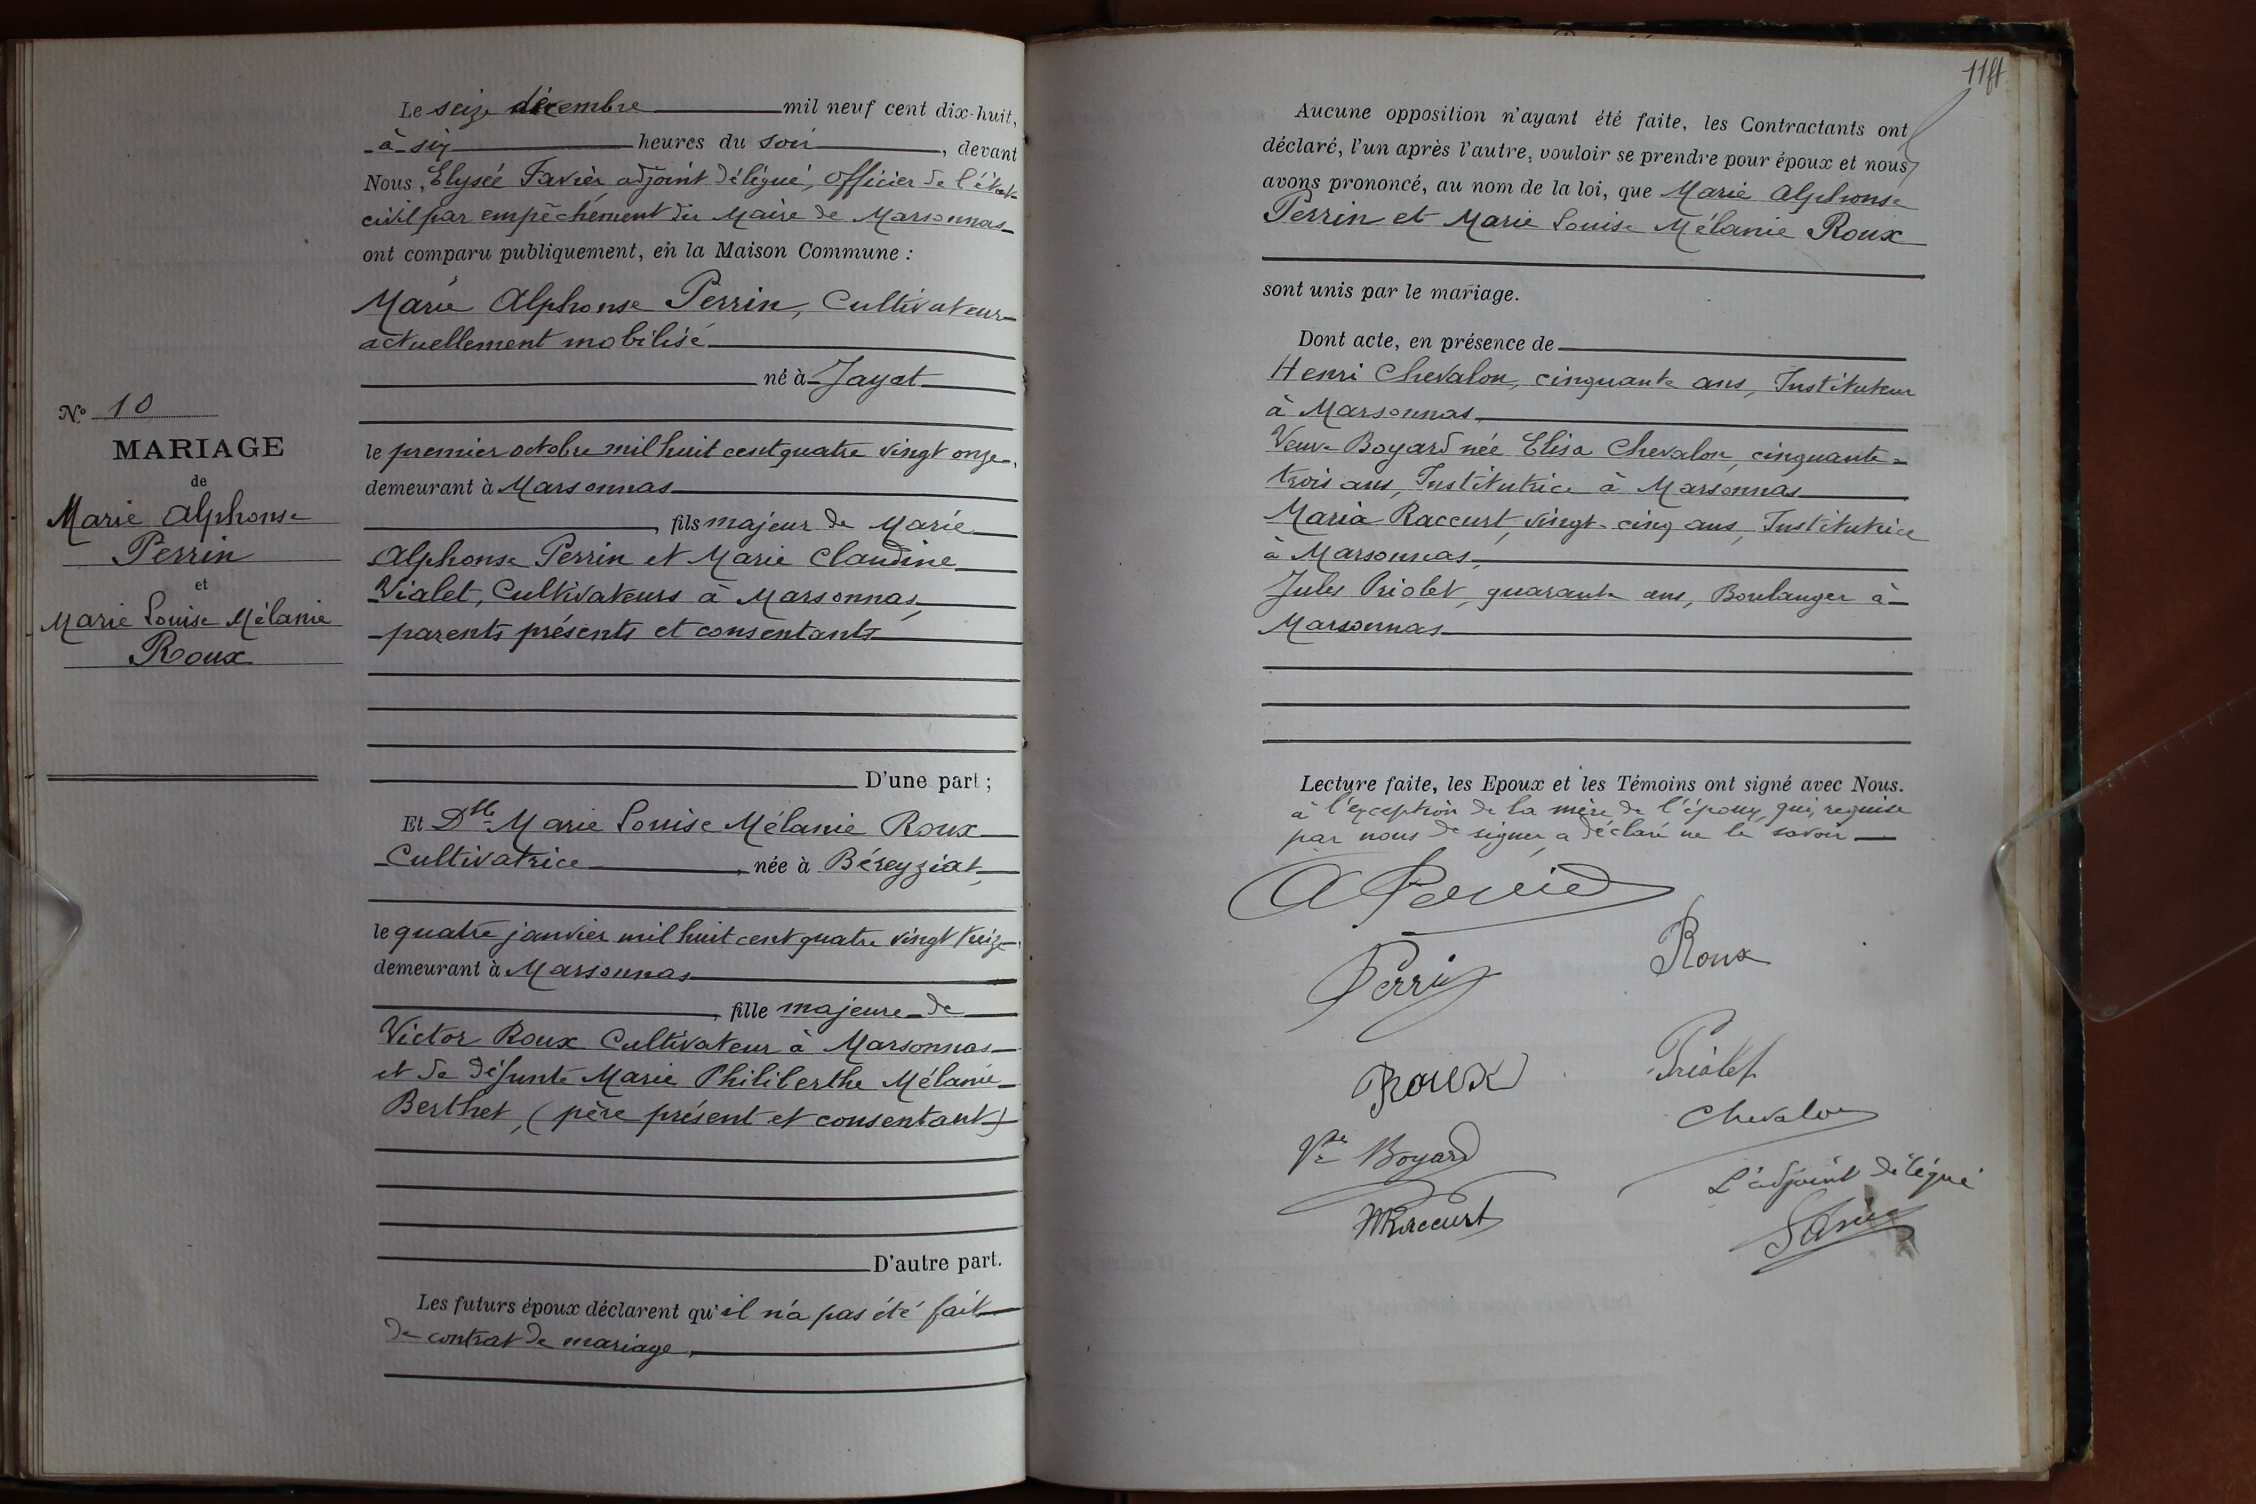 N° 10
MARIAGE
de
Marie Alphonse
Perrin
et
Marie Louise Mélanie
Roux
Le seize décembre mil neuf cent dix-huit,
à six heures du soir, devant
Nous, Elysée Favier, adjoint délégué, officier de l'état-
civil par empêchement du Maire de Marsonnas
ont comparu publiquement, en la Maison Commune :
Marie Alphonse Perrin, Cultivateur
actuellement mobilisé
né à Jayat
le premier octobre mil huit cent quatre vingt onze,
demeurant à Marsonnas
, fils majeur de Marie
Alphonse Perrin et Marie Claudine
Vialet, Cultivateurs à Marsonnas,
parents présents et consentants
D'une part ;
Et Dlle Marie Louise Mélanie Roux
Cultivatrice, née à Béreyziat,
le quatre janvier mil huit cent quatre vingt treize,
demeurant à Marsonnas
, fille majeure de
Victor Roux Cultivateur à Marsonnas
et de défunte Marie Philiberthe Mélanie
Berthet, (père présent et consentant)
D'autre part.
Les futurs époux déclarent qu'il n'a pas été fait
de contrat de mariage.
Aucune opposition n'ayant été faite, les Contractants ont
déclaré, l'un après l'autre, vouloir se prendre pour époux et nous
avons prononcé, au nom de la loi, que Marie Alphonse
Perrin et Marie Louise Mélanie Roux
sont unis par le mariage.
Dont acte, en présence de
Henri Chevalon, cinquante ans, Instituteur
à Marsonnas
Veuve Boyard née Elisa Chevalon, cinquante-
trois ans, Institutrice à Marsonnas
Maria Raccurt, vingt-cinq ans, Institutrice
à Marsonnas,
Jules Priolet, quarante ans, Boulanger à
Marsonnas
Lecture faite, les Epoux et les Témoins ont signé avec Nous.
à l'exception de la mère de l'époux, qui, requise
par nous de signer, a déclaré ne le savoir
A Perrin
Perrin
Roux
Roux
Priolet
Chevalon
Vve Boyard
L'adjoint délégué
MRaccurt
Favier